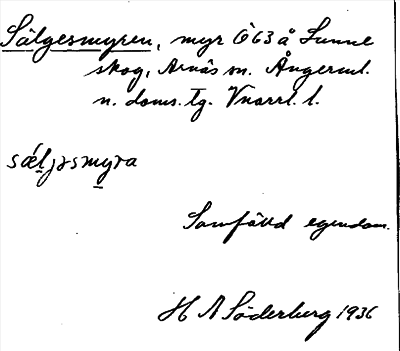 Sälgesmyren, myr Ö 63 å Sunne
skog, Arnäs sn. Ångerml.
n. doms. tg. Vnorrl. l.
sæljɘsmyra
Samfälld egendom.
H A Söderberg 1936